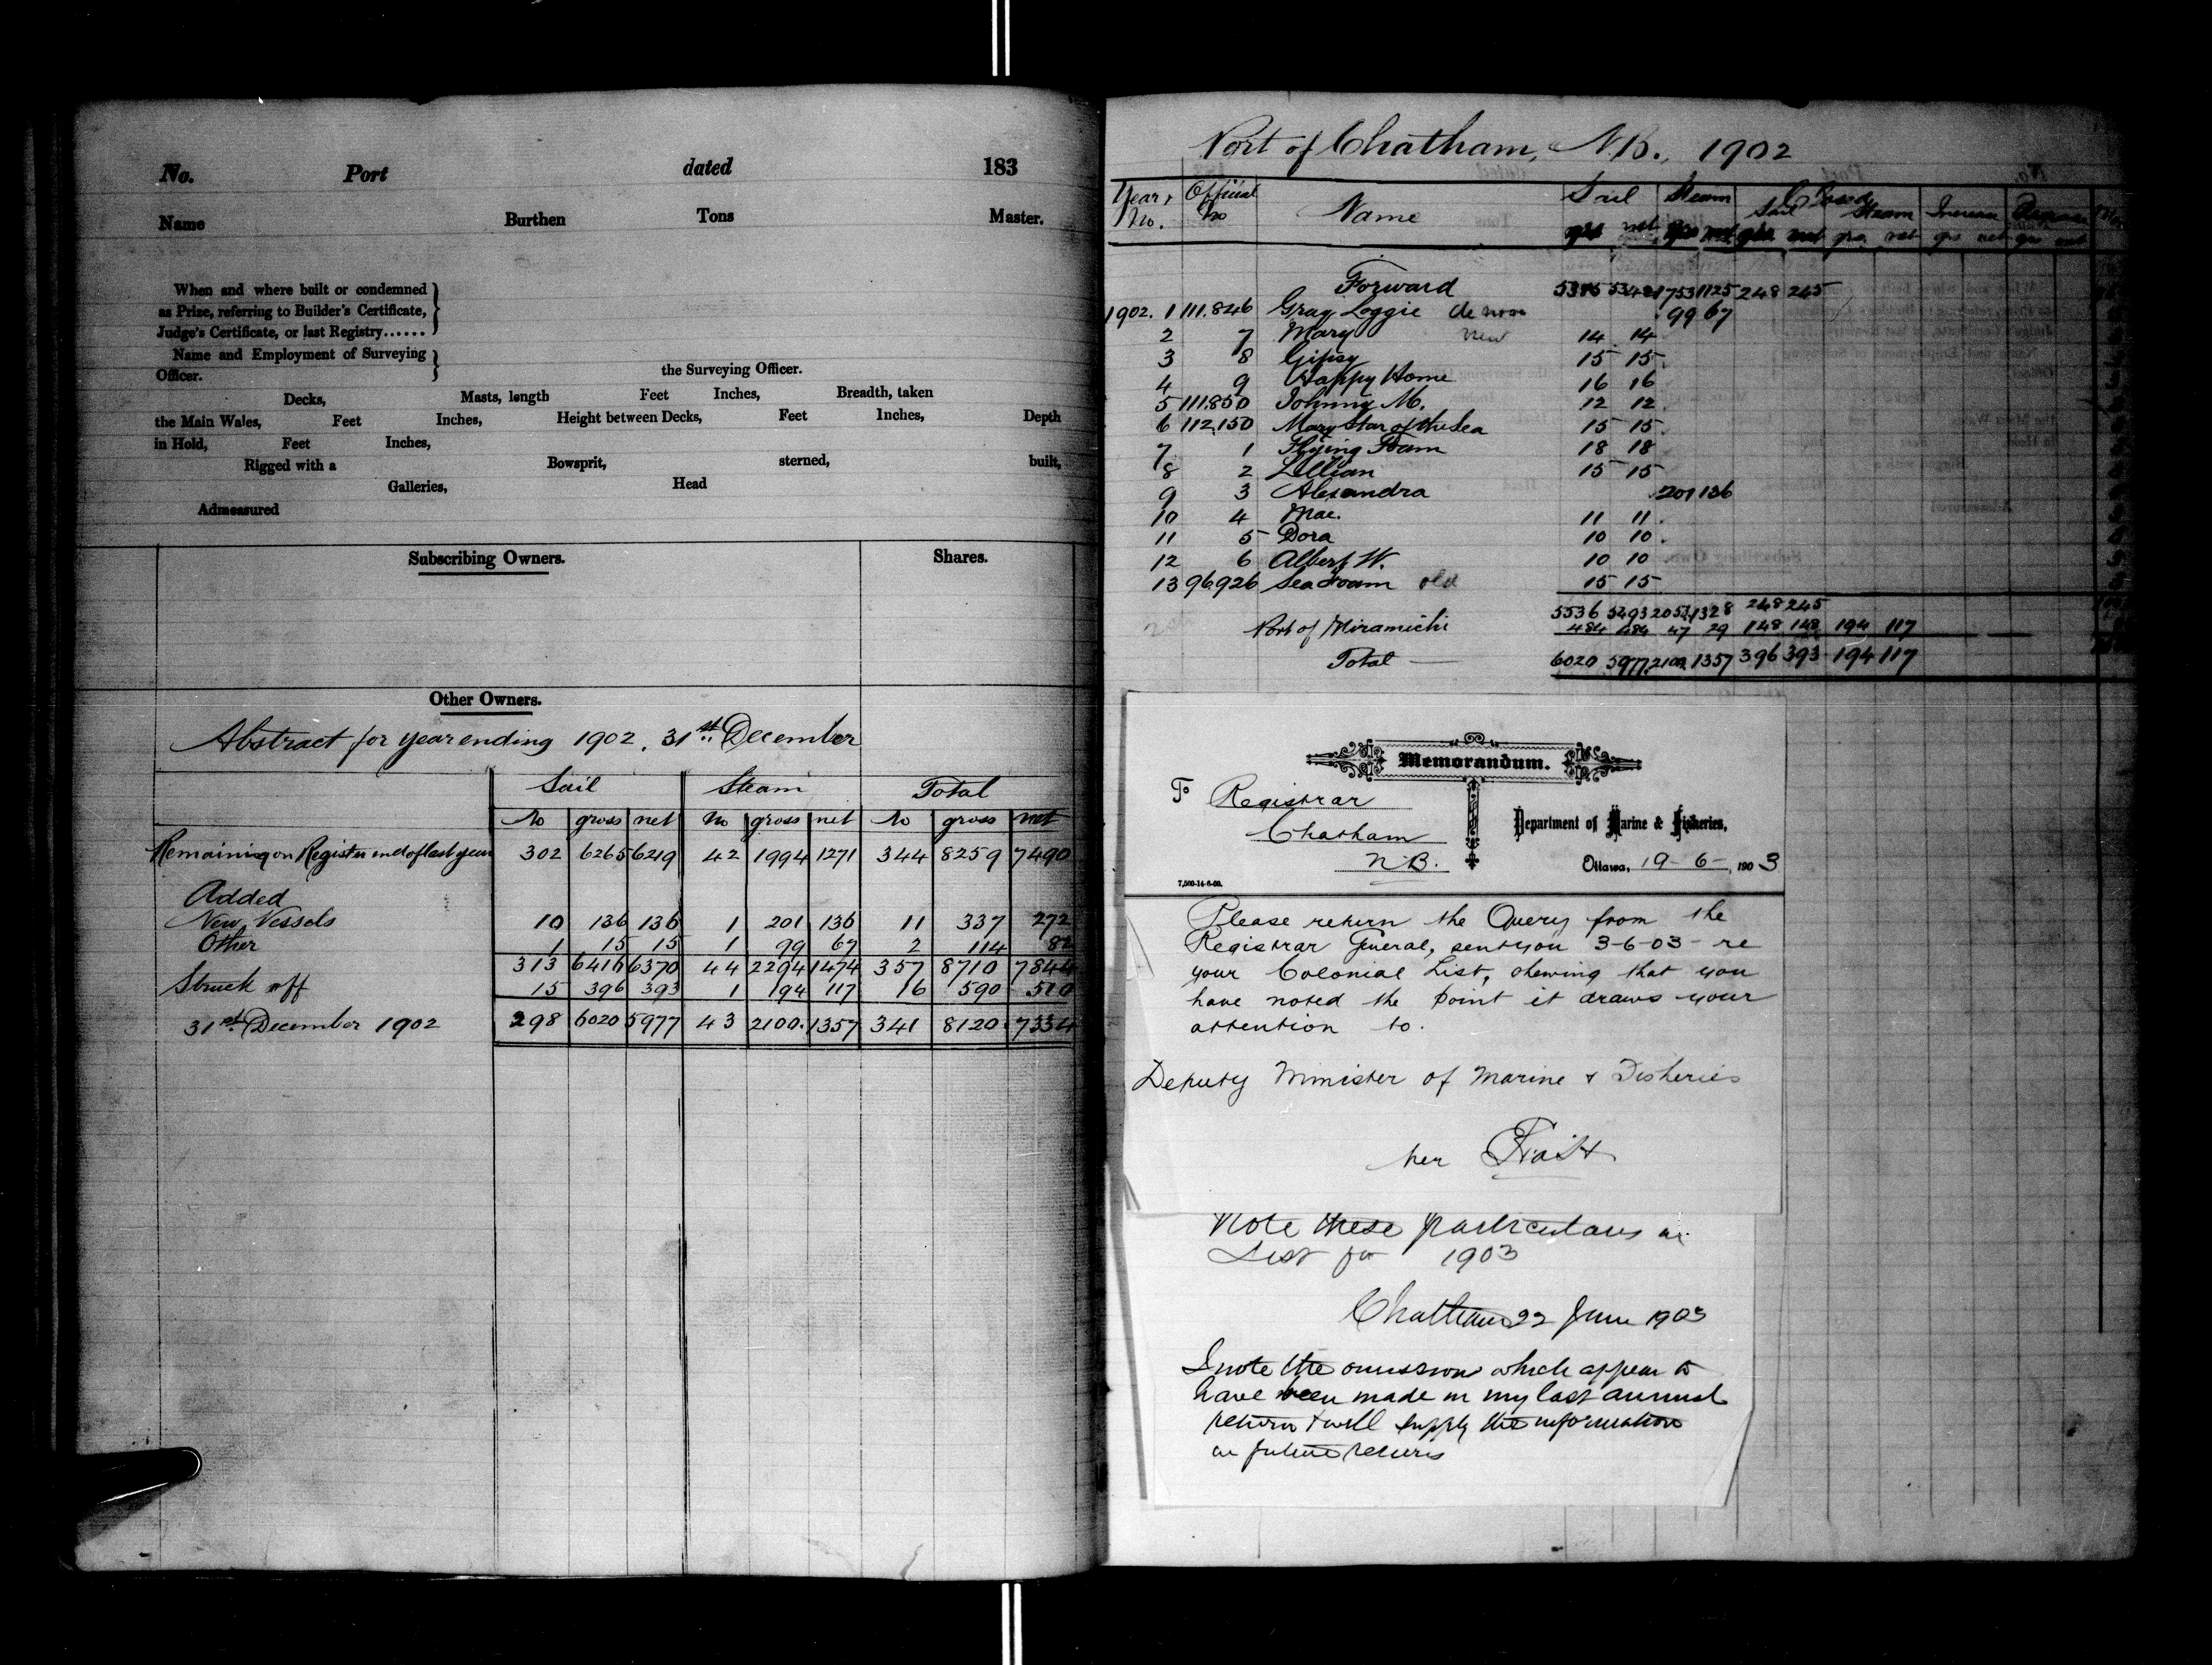 No. Port dated 183
Name Burthen Tons Master.
When and where built or condemned
as Prize, referring to Builder's Certificate,
Judge's Certificate, or last Registry......
Name and Employment of Surveying
Officer. the Surveying Officer.
Decks, Masts, length Feet Inches, Breadth, taken
the Main Wales, Feet Inches, Height between Decks, Feet Inches, Depth
in Hold, Feet Inches,
Rigged with a Bowsprit, sterned, built,
Galleries, Head
Admeasured
Subscribing Owners. Shares.
Other Owners.
Abstract for year ending 1902, 31st December
Sail Steam Total
No gross net No gross net No gross net
Remaining on Register end of last year 302 6265 6219 42 1994 1271 344 8259 7490
Added
New Vessels 10 136 136 1 201 136 11 337 272
Other 1 15 15 1 99 67 2 114 82
313 6416 6370 44 2294 1474 357 8710 7844
Struck off 15 396 393 1 194 117 16 590 510
31st December 1902 298 6020 5977 43 2100 1357 341 8120 7334
Port of Chatham, N.B., 1902
Year & No. Official No Name Sail Steam Closed Sail Steam Increase Decrease
net gro net grs net grs net
Forward 1753 1125 248 245
1902. 1 111.846 Gray Loggie de novo 99 67
2 7 Mary new 14 14
3 8 Gipsy 15 15
4 9 Happy Home 16 16
5 111.850 Johnny M. 12 12
6 112,150 Mary Star of the Sea 15 15
7 1 Flying Foam 18 18
8 2 Lillian 15 15
9 3 Alexandra 201 136
10 4 Mae. 11 11
11 5 Dora 10 10
12 6 Albert W. 10 10
13 96926 Sea Foam old 15 15
5536 5493 2053 1328 248 245
Port of Miramichi 484 484 47 29 148 148 194 117
Total 6020 5977 2100 1357 396 393 194 117
Memorandum.
To Registrar
Chatham
N.B.
Department of Marine & Fisheries,
Ottawa, 19-6-, 1903
7,500-14-6-00.
Please return the Query from the
Registrar General, sent you 3-6-03- re
your Colonial List, shewing that you
have noted the point it draws your
attention to.
Deputy Minister of Marine & Fisheries
per
Note these particulars in
List for 1903
Chatham 22 June 1903
I note the omission which appear to
have been made in my last annual
return & will supply the information
in future returns